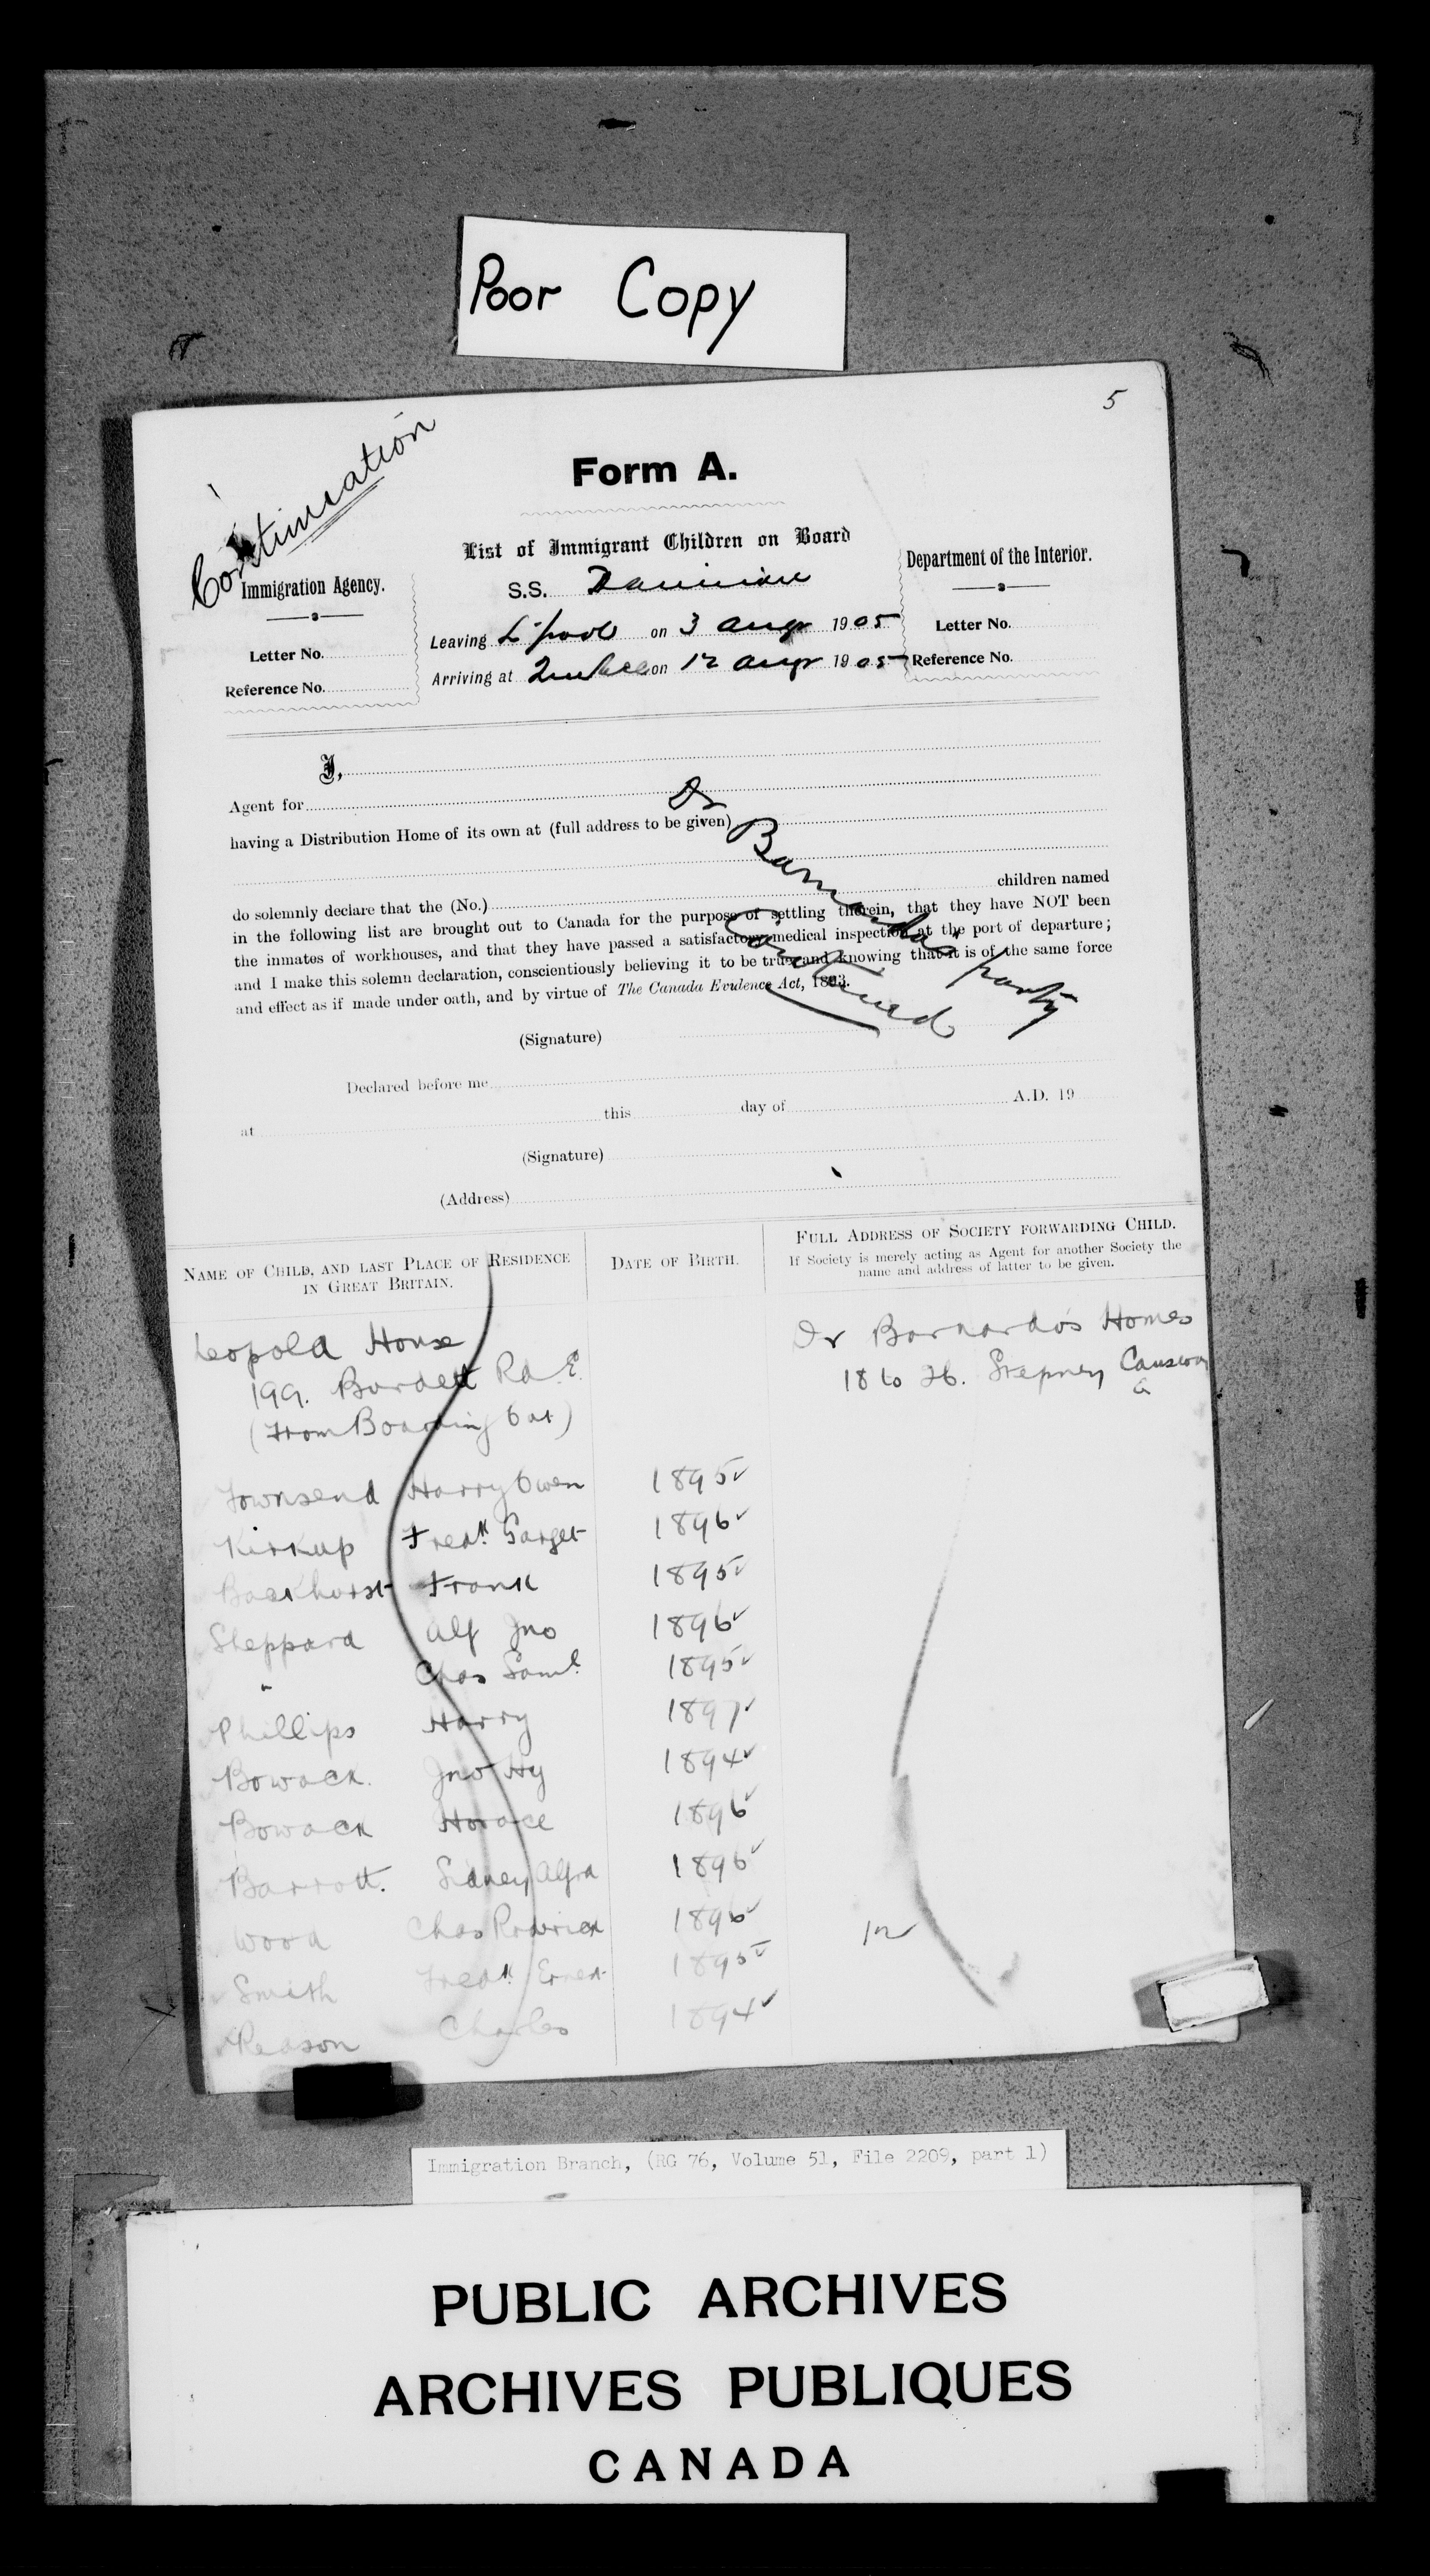 Poor Copy
5
Continuation
Form A.
List of Immigrant Children on Board
S.S. Dominion
Leaving L'pool on 3 Augr 1905
Arriving at Quebec on 12 Augr 1905
Immigration Agency.
Letter No.
Reference No.
Department of the Interior.
Letter No.
Reference No.
I,
Agent for
having a Distribution Home of its own at (full address to be given)
do solemnly declare that the (No.) children named
in the following list are brought out to Canada for the purpose of settling therein, that they have NOT been
the inmates of workhouses, and that they have passed a satisfactory medical inspection at the port of departure;
and I make this solemn declaration, conscientiously believing it to be true and knowing that it is of the same force
and effect as if made under oath, and by virtue of The Canada Evidence Act, 1893.
Dr Barnardo's party
Continued
(Signature)
Declared before me
at this day of A.D. 19
(Signature)
(Address)
Name of Child, and last Place of Residence
in Great Britain.
Date of Birth.
Full Address of Society forwarding Child.
If Society is merely acting as Agent for another Society the
name and address of latter to be given.
Leopold House
199. Burdett Rd E.
(From Boarding Out)
Dr Barnardo's Homes
18 to 26. Stepney Causeway
Townsend Harry Owen 1895
Kirkup Fredk Garget 1896
Backhurst Frank 1895
Sheppard Alf Jno 1896
" Chas Saml 1895
Phillips Harry 1897
Bowack Jno Hy 1894
Bowack Horace 1896
Barrott. Sidney Alfrd 1896
Wood Chas Rodrick 1896
Smith Fredk Ernest 1895
Reason Charles 1894
12
Immigration Branch, (RG 76, Volume 51, File 2209, part 1)
PUBLIC ARCHIVES
ARCHIVES PUBLIQUES
CANADA